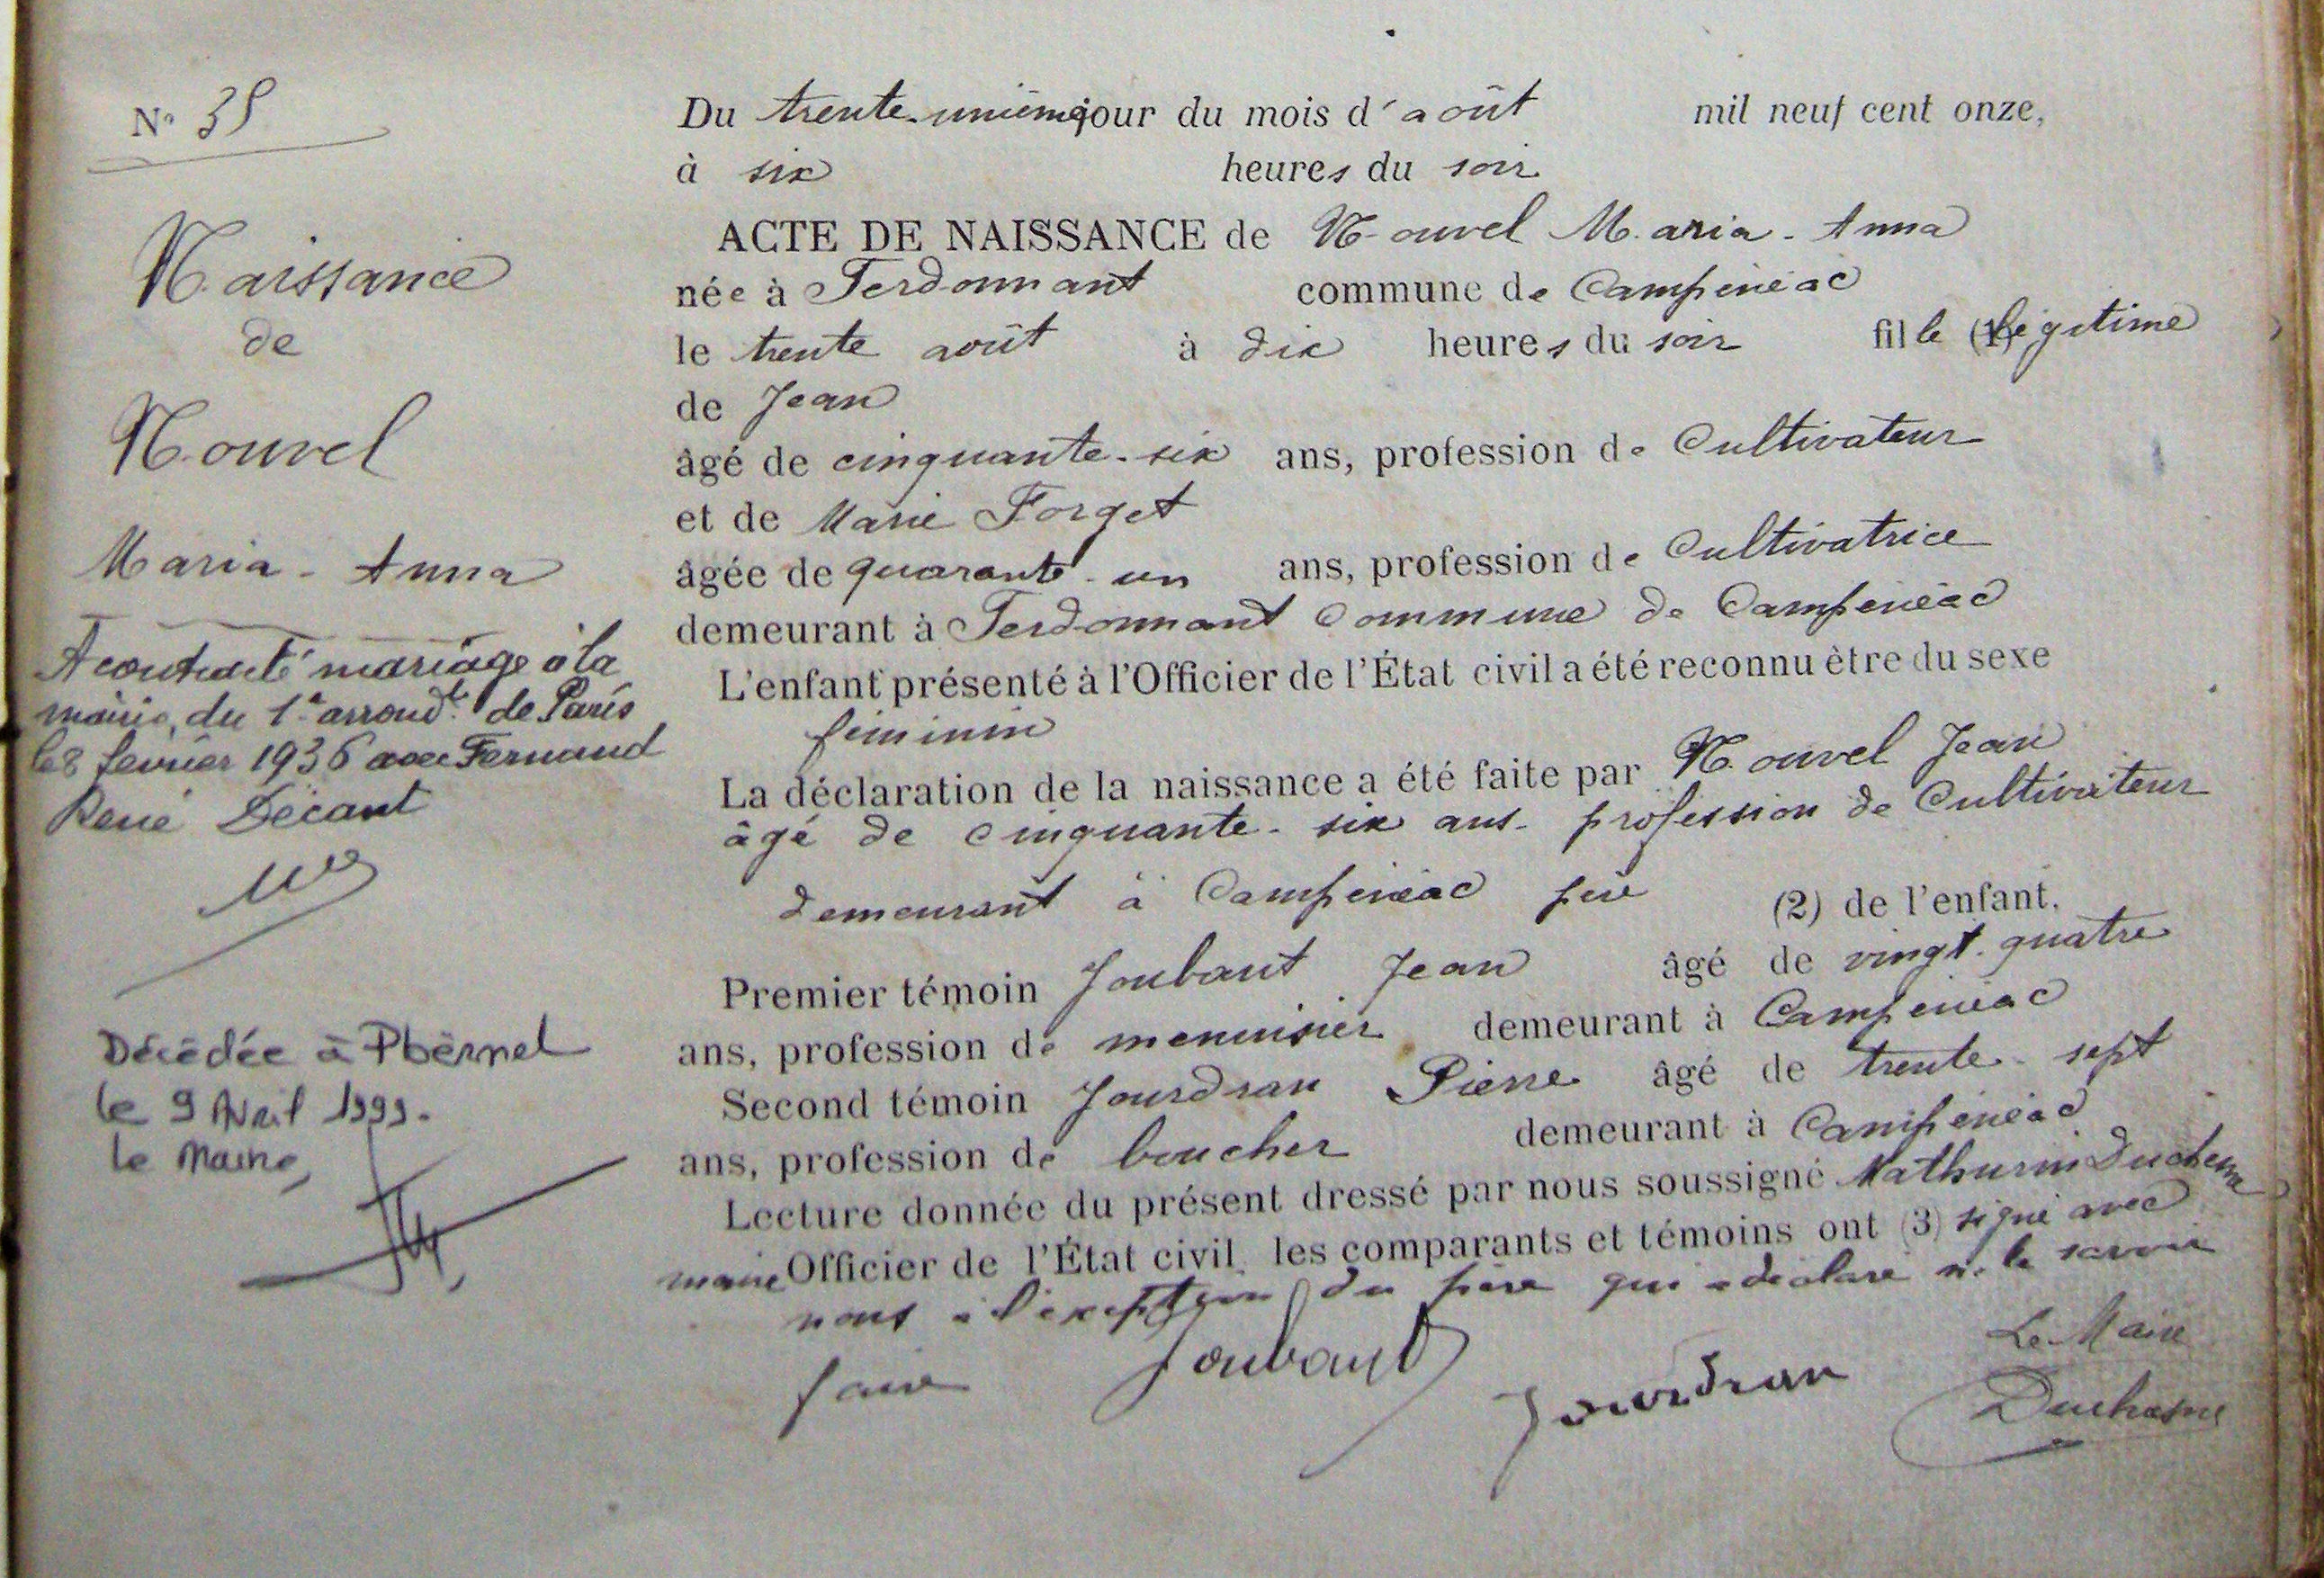 N° 35
Naissance
de
Nouvel
Maria - Anna
A contracté mariage à la
mairie du 1er arrondt de Paris
le 8 février 1936 avec Fernand
René Décant
Décédée à Ploërmel
le 9 Avril 1999.
le Maire,
Du trente-unième jour du mois d'août mil neuf cent onze,
à six heures du soir
ACTE DE NAISSANCE de Nouvel Maria - Anna
née à Ferdonnant commune de Campénéac
le trente août à dix heures du soir fille (1) légitime
de Jean
âgé de cinquante-six ans, profession de Cultivateur
et de Marie Forget
âgée de quarante-un ans, profession de Cultivatrice
demeurant à Ferdonnant Commune de Campénéac
L'enfant présenté à l'Officier de l'État civil a été reconnu être du sexe
féminin
La déclaration de la naissance a été faite par Nouvel Jean
âgé de cinquante-six ans - profession de Cultivateur
demeurant à Campénéac père (2) de l'enfant.
Premier témoin Joubaut Jean âgé de vingt-quatre
ans, profession de menuisier demeurant à Campénéac
Second témoin Jourdran Pierre âgé de trente-sept
ans, profession de boucher demeurant à Campénéac
Lecture donnée du présent dressé par nous soussigné Mathurin Duchesne
maire Officier de l'État civil, les comparants et témoins ont (3) signé avec
nous à l'exception du père qui a déclaré ne le savoir
faire Joubaut Jourdran Le Maire
Duchesne